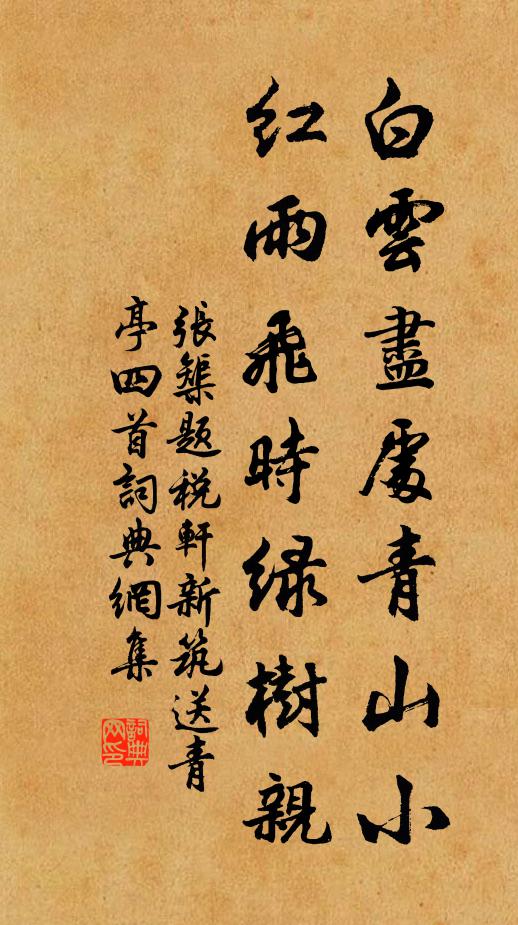 白雲盡處青山小
紅雨飛時緑樹親
張榘題税軒新筑送青
亭四首詞典網集
詞典
网印